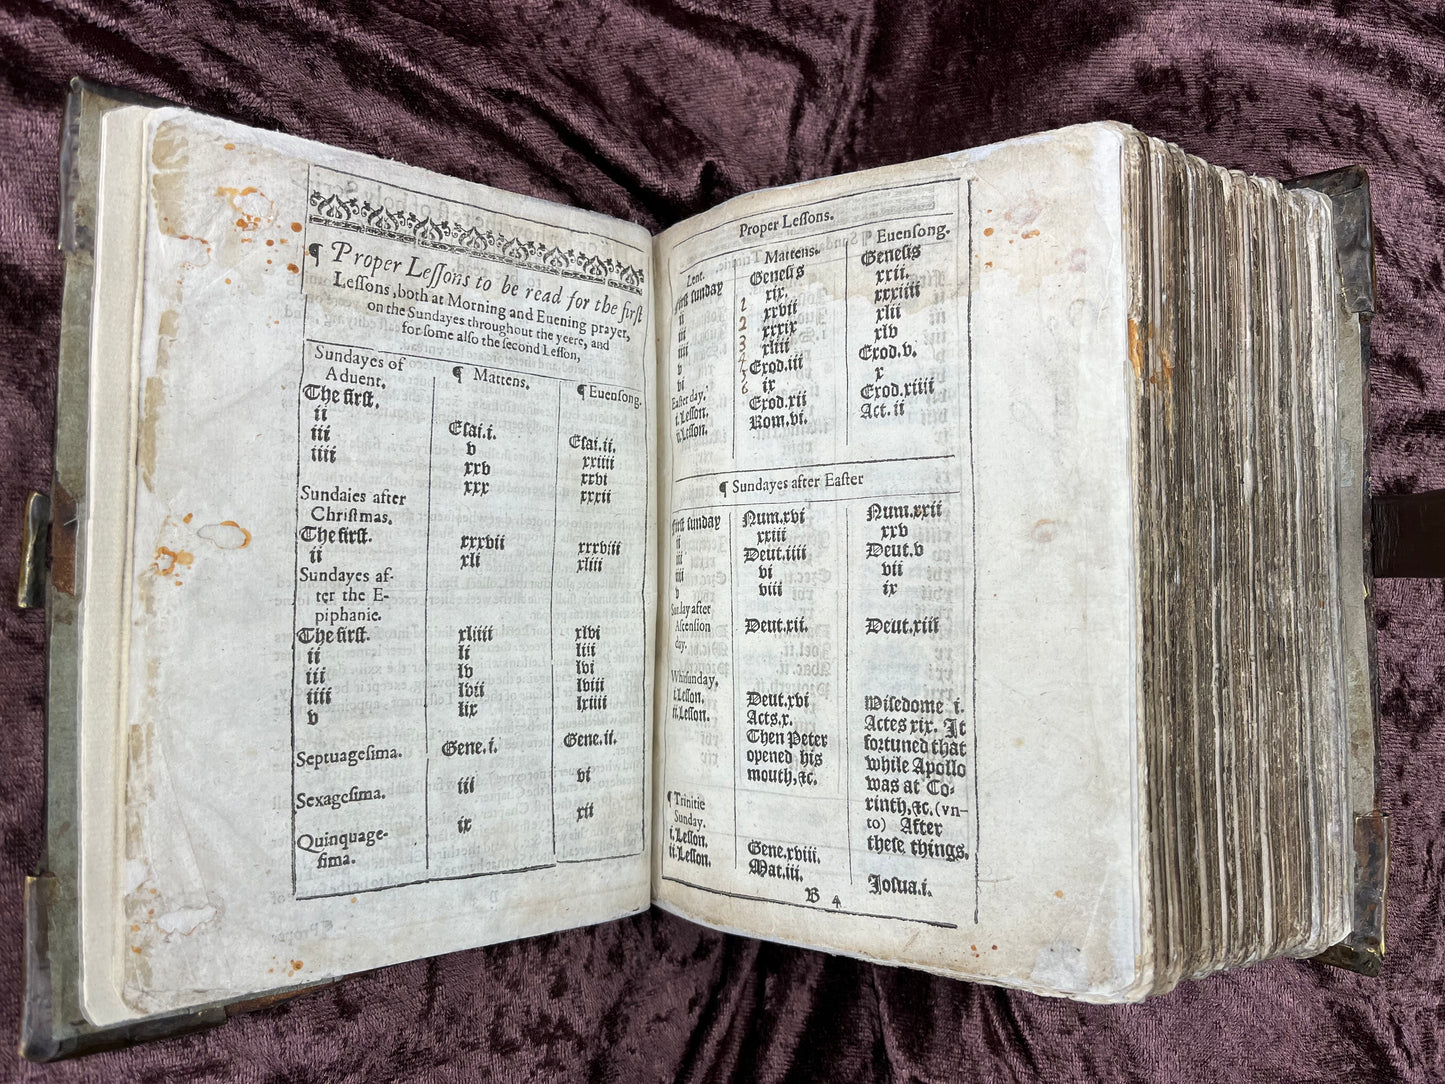 ¶ Proper Leſſons to be read for the firſt
Leſſons, both at Morning and Euening prayer,
on the Sundayes throughout the yeere, and
for ſome alſo the ſecond Leſſon,
Sundayes of
Aduent. ¶ Mattens. ¶ Euenſong.
The firſt. Eſai.i. Eſai.ii.
ii v xxiiii
iii xxv xxvi
iiii xxx xxxii
Sundaies after
Chriſtmas.
The firſt. xxxvii xxxviii
ii xli xliii
Sundayes af-
ter the E-
piphanie.
The firſt. xliiii xlvi
ii li liii
iii lv lvi
iiii lvii lviii
v lix lxiiii
Septuageſima. Gene.i. Gene.ii.
Sexageſima. iii vi
Quinquage-
ſima. ix xii
Proper Leſſons.
Lent. Mattens. ¶ Euenſong.
Firſt ſunday Geneſis Geneſis
1 xix. xxii.
ii 2 xxvii xxxiiii
iii 3 xxxix xlii
iiii 4 xliii xlv
v 5 Exod.iii Exod.v.
vi 6 ix x
Eaſter day.
i. Leſſon. Exod.xii Exod.xiiii
ii. Leſſon. Rom.vi. Act.ii
¶ Sundayes after Eaſter
Firſt ſunday Num.xvi Num.xxii
ii xxiii xxv
iii Deut.iiii Deut.v
iiii vi vii
v viii ix
Sunday after
Aſcenſion
day. Deut.xii. Deut.xiii
Whitſunday.
i. Leſſon. Deut.xvi Wiſedome i.
ii. Leſſon. Acts.x. Actes xix. It
Then Peter fortuned that
opened his while Apollo
mouth,&c. was at Co-
rinth,&c.(vn-
to) After
theſe things.
¶ Trinitie
Sunday.
i. Leſſon. Gene.xviii. Joſua.i.
ii. Leſſon. Mat.iii.
B 4